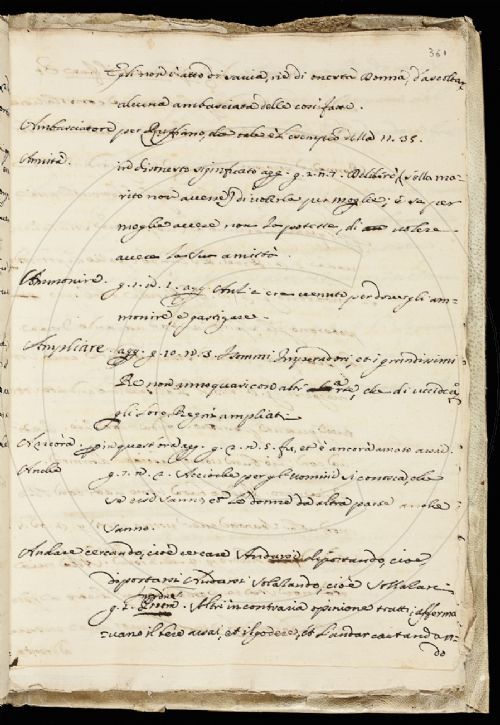 361
Egli non è atto di savia, nè di onesta Donna, d'ascoltar
alcuna ambasciata delle così fatte.
Ambasciatore per Ruffiano, tale è l'esempio della n. 35.
Amistà. in disonesto significato agg. g. 2. n. 7.
rito non avere) di volerla per moglie; e se per
moglie avere non la potesse, di volere
avere la sua amistà.
Ammonire. g. 1. n. 1. agg. era venuto per dovergli am-
monire, e gastigare.
Ampliare. agg. g. 10. n. 3. I sommi Imperadori, et i grandissimi
Re non hanno quasi con altr' arte, che di uccidere
gli loro Regni ampliati.
Ancora. g. 2. n. 5.
Anche g. 7. n. 2. Acciocchè per gli uomini si conosca, che
se essi sanno et le donne da altra parte anche
sanno.
Andare cercando, cioè cercare Andarsi diportando, cioè,
diportarsi Andarsi sollazzando, cioè sollazzarsi
g. 2. Altri in contraria opinione tratti, afferma-
vano il bere assai, et il godere, et l'andar cantando
do